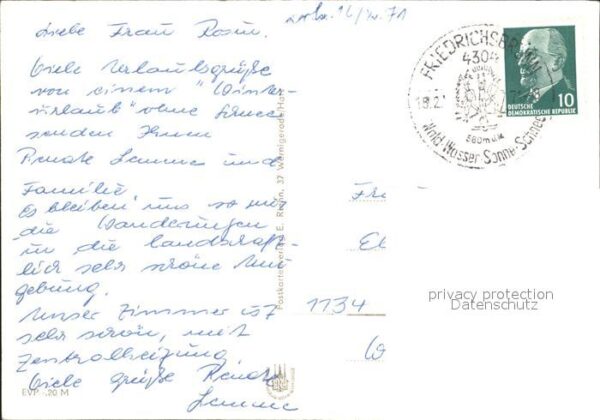 Liebe Frau Rosin.
Viele Urlaubsgrüße
von einem "Winter-
urlaub" ohne Schnee
senden Ihnen
Renate Lemme und
Familie
Es bleiben uns so nur
die Wanderungen
in die landschaft-
lich sehr schöne Um-
gebung.
Unser Zimmer ist
sehr schön, mit
Zentralheizung.
Viele Grüße Renate
Lemme
EVP -,20 M
Postkartenverlag E. Riehn, 37 Wernigerode/Harz
FRIEDRICHSBRUNN
4304
18.2.
580m ü.M.
Wald-Wasser-Sonne-Schnee
DEUTSCHE
DEMOKRATISCHE REPUBLIK
10
Fra
El
1134
privacy protection
Datenschutz